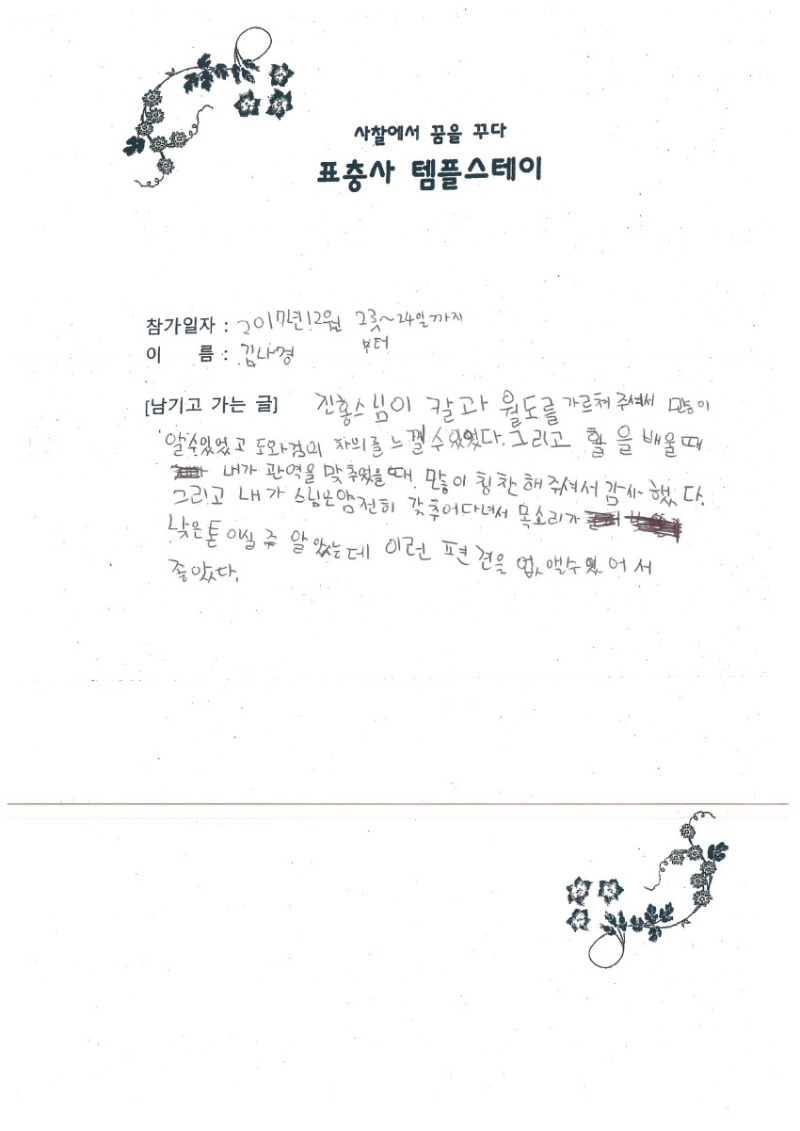 사찰에서 꿈을 꾸다
표충사 템플스테이
참가일자 : 2017년12월 23~24일까지
부터
이 름 : 김나경
[남기고 가는 글] 진홍스님이 칼과 월도를 가르쳐 주셔서 많이
알수있었고 도와검의 차의를 느낄수있었다. 그리고 활을 배울때
내가 관역을 맞추었을때 많이 칭찬해주셔서 감사했다.
그리고 내가 스님은얌전히 갖추어다녀서 목소리가
낮은톤 이실 줄 알았는데 이런 편견을 없앨수있어서
좋았다.